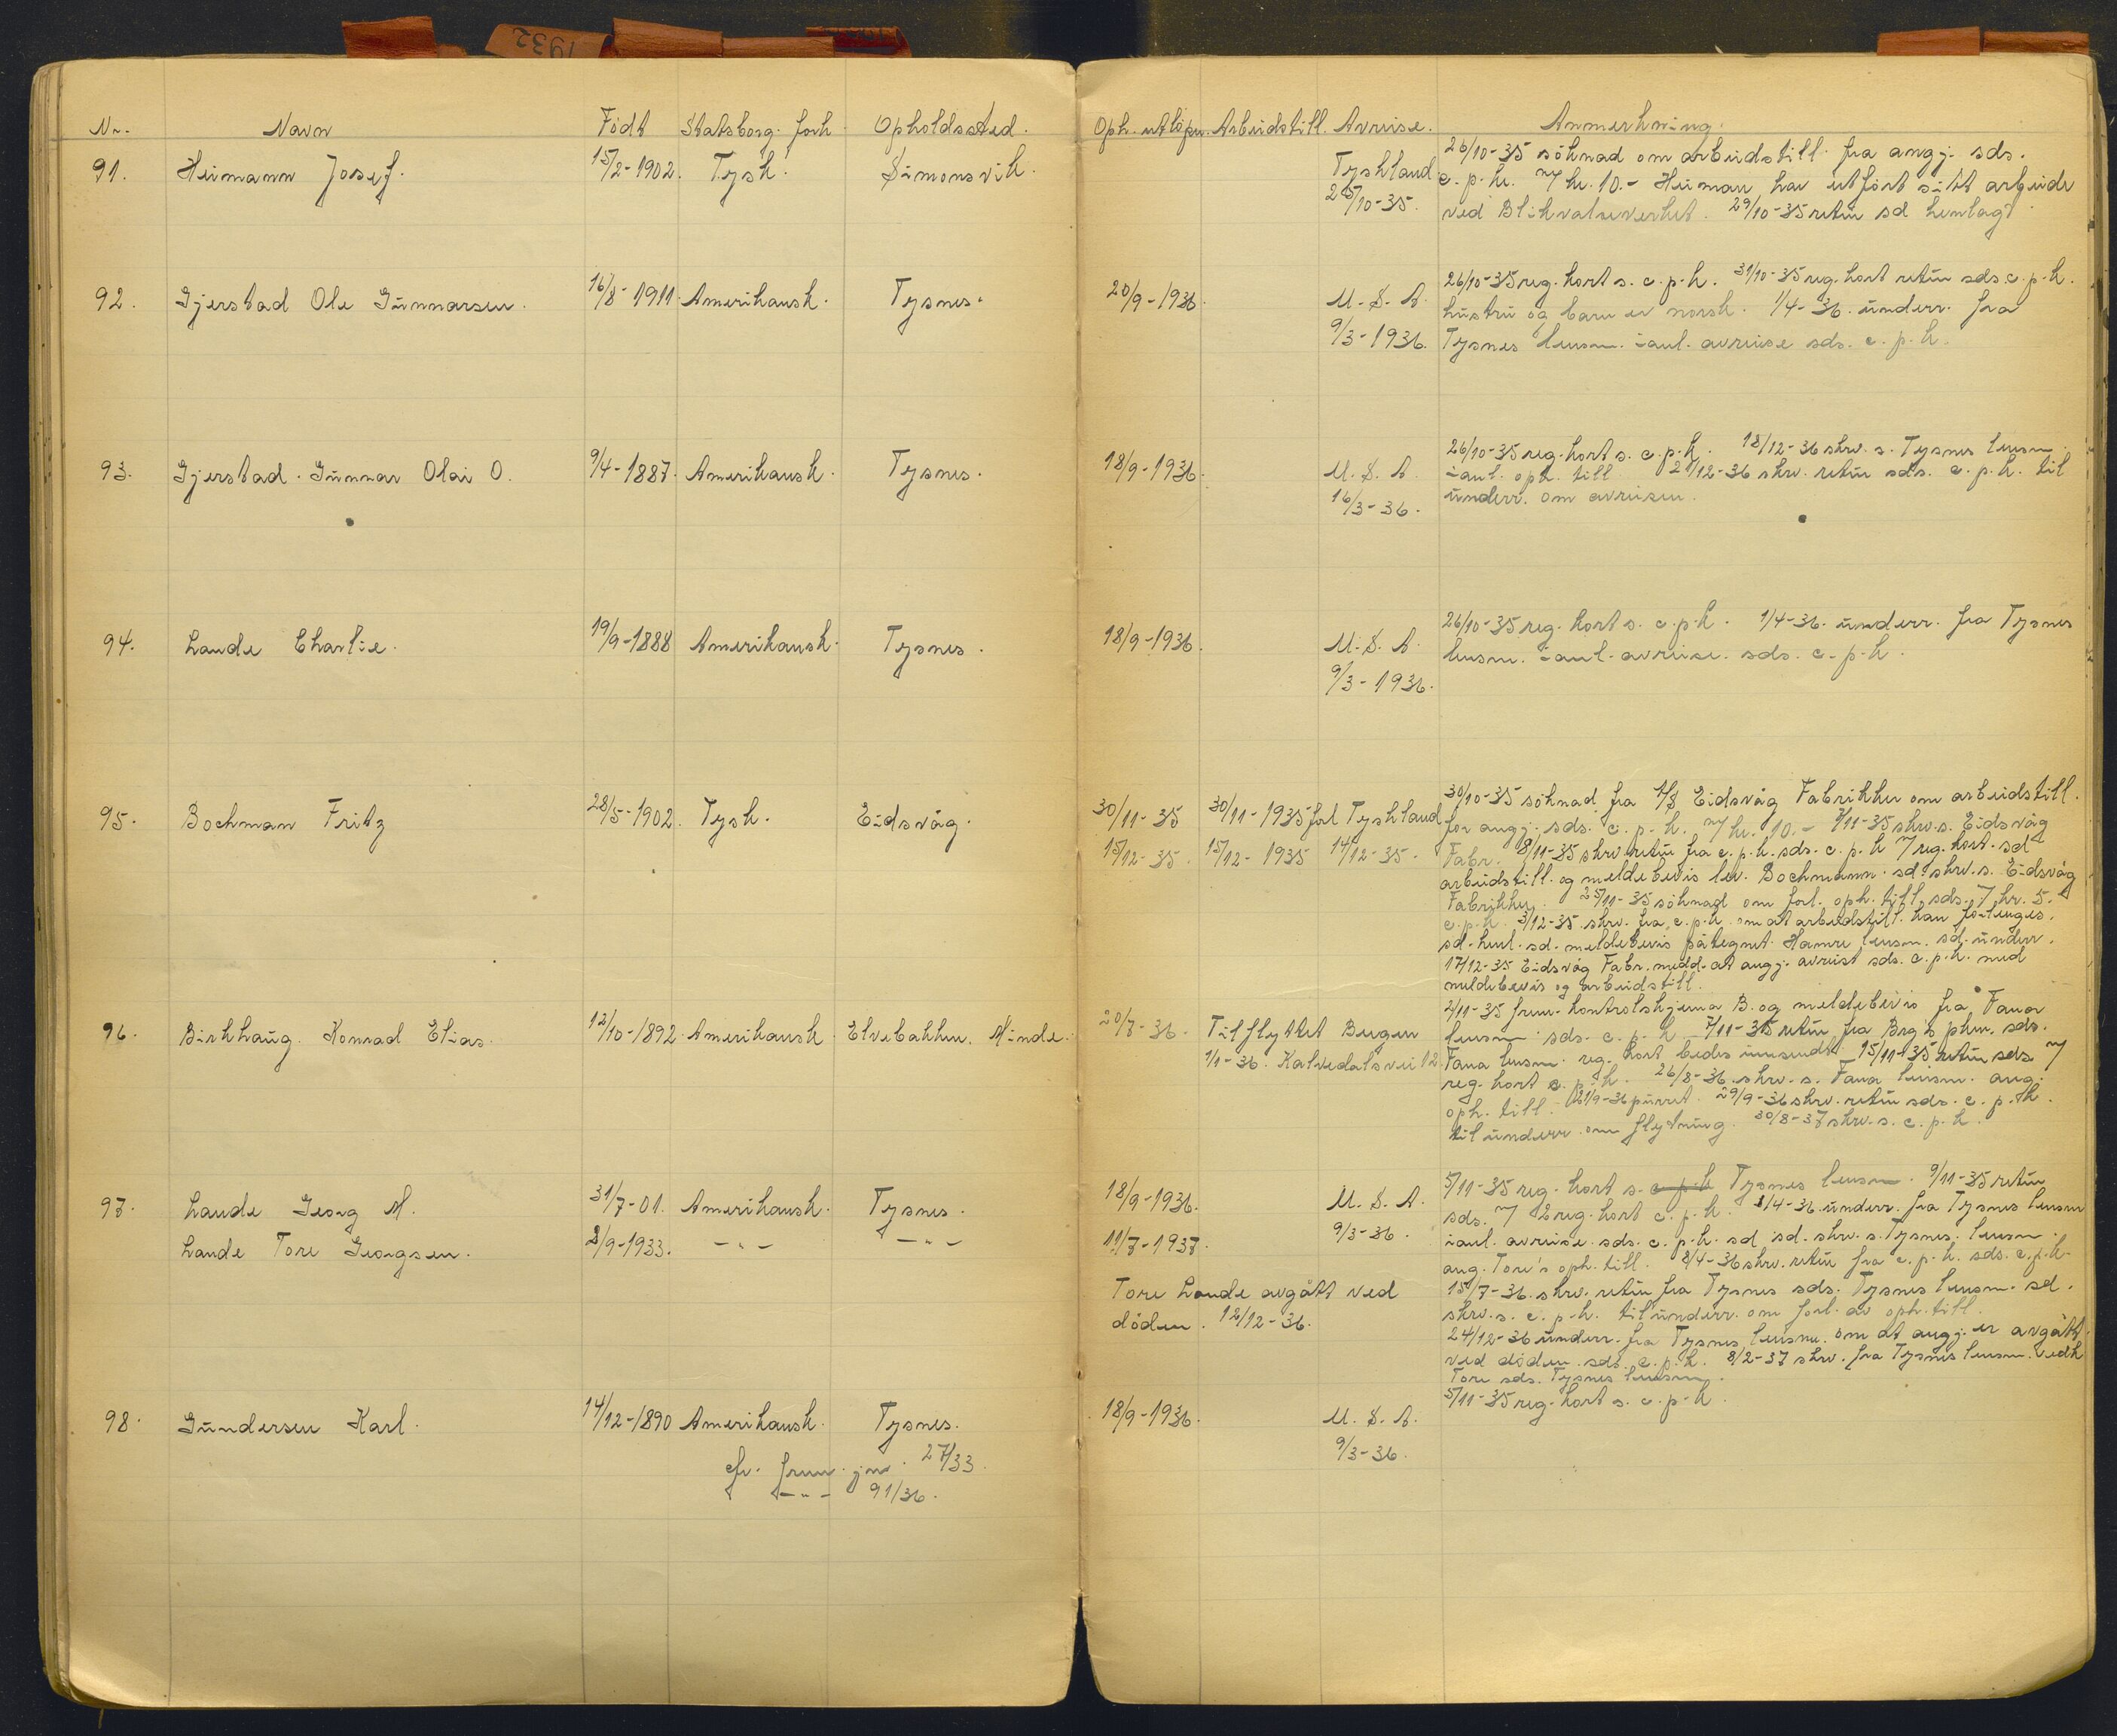 1932
Nr. Navn Födt Statsborg. forh. Opholdssted. Oph. utlöper. Arbeidstill. Avreise. Anmerkning.
91. Heimann Josef. 15/2-1902. Tysk. Simonsvik. Tyskland 26/10-35 söknad om arbeidstill. fra angj. sds.
c. p. k. 7 kr. 10.- Heiman har utfört sitt arbeide
25/10-35. ved Blikvalseverket. 29/10-35 retur sd henlagt
92. Gjerstad Ole Gunnarsen. 16/8-1911. Amerikansk. Tysnes. 20/9-1936. U. S. A. 26/10-35 reg. kort s. c. p. k. 31/10-35 reg. kort retur sds. c. p. k.
hustru og barn er norsk. 1/4-36. underr. fra
9/3-1936. Tysnes lensm. i anl. avreise sds. c. p. k.
93. Gjerstad. Gunnar Olai O. 9/4-1887. Amerikansk. Tysnes. 18/9-1936. U. S. A. 26/10-35 reg. kort s. c. p. k. 18/12-36 skrv. s. Tysnes lensm.
i anl. oph. till. 21/12-36 skrv. retur sds. c. p. k. til
16/3-36. underr. om avreisen.
94. Lande Charlie. 19/9-1888 Amerikansk. Tysnes. 18/9-1936. U. S. A. 26/10-35 reg. kort s. c. p. k. 1/4-36. underr. fra Tysnes
lensm. i anl. avreise. sds. c. p. k.
9/3-1936.
95. Bochman Fritz 28/5-1902. Tysk. Eidsvåg. 30/11-35 30/11-1935 forl Tyskland 30/10-35 söknad fra A/S Eidsvåg Fabrikker om arbeidstill.
for angj. sds. c. p. k. 7 kr. 10.- 7/11-35 skrv. s. Eidsvåg
15/12-35. 15/12-1935 14/12-35. Fabr. 8/11-35 skrv retur fra c. p. k. sds. c. p. k 7 reg. kort. sd
arbeidstill. og meldebevis lev. Bochmann. sd. skrv. s. Eidsvåg
Fabrikker. 25/11-35 söknad om forl. oph. till. sds. 7 kr. 5.-
c. p. k. 3/12-35 skrv. fra c. p. k. om at arbeidstill. kan forlenges.
sd. henl. sd. meldebevis påtegnet. Hamre lensm. sd. underr.
17/12-35 Eidsvåg Fabr. medd. at angj. avreist sds. c. p. k. med
meldebevis og arbeidstill.
96. Birkhaug. Konrad Elias. 12/10-1892. Amerikansk. Elvebakken. Minde. 20/8-36. Tilflyttet Bergen 2/11-35 frem. kontrolskjema B. og meldebevis fra Fana
lensm sds. c. p. k 7/11-35 retur fra Brg's pkm. sds.
1/1-36. Kalvedalsvei 12 Fana lensm. reg. kort bedes innsendt. 15/11-35 retur sds 7
reg. kort c. p. k. 26/8-36 skrv. s. Fana lensm. ang.
oph. till. 21/9-36 purret. 29/9-36 skrv. retur sds. c. p. k.
til underr om flytning. 30/8-37 skrv. s. c. p. k.
97. Lande Georg M. 31/7-01. Amerikansk. Tysnes. 18/9-1936. U. S. A. 5/11-35 reg. kort s. c p k Tysnes lensm. 9/11-35 retur
sds. 7 2 reg. kort c. p. k. 1/4-36. underr. fra Tysnes lensm
Lande Tore Georgsen. 2/9-1933. -"- -"- 11/7-1937. 9/3-36. i anl. avreise. sds. c. p. k. sd sd. skrv. s. Tysnes. lensm.
ang. Tore's oph. till. 8/4-36 skrv. retur fra c. p. k. sds. c. p. k.
Tore Lande avgått ved 15/7-36. skrv. retur fra Tysnes sds. Tysnes lensm. sd.
döden. 12/12-36. skrv. s. c. p. k. til underr. om forl. av oph. till.
24/12-36 underr. fra Tysnes lensm. om at angj. er avgått
ved döden. sds. c. p. k. 8/2-37 skrv. fra Tysnes lensm. vedk
Tore sds. Tysnes lensm.
98. Gundersen Karl. 14/12-1890 Amerikansk. Tysnes. 18/9-1936. U. S. A. 5/11-35 reg. kort s. c. p. k.
cfr. frem. jnr. 27/33. 9/3-36.
-"- 91/36.